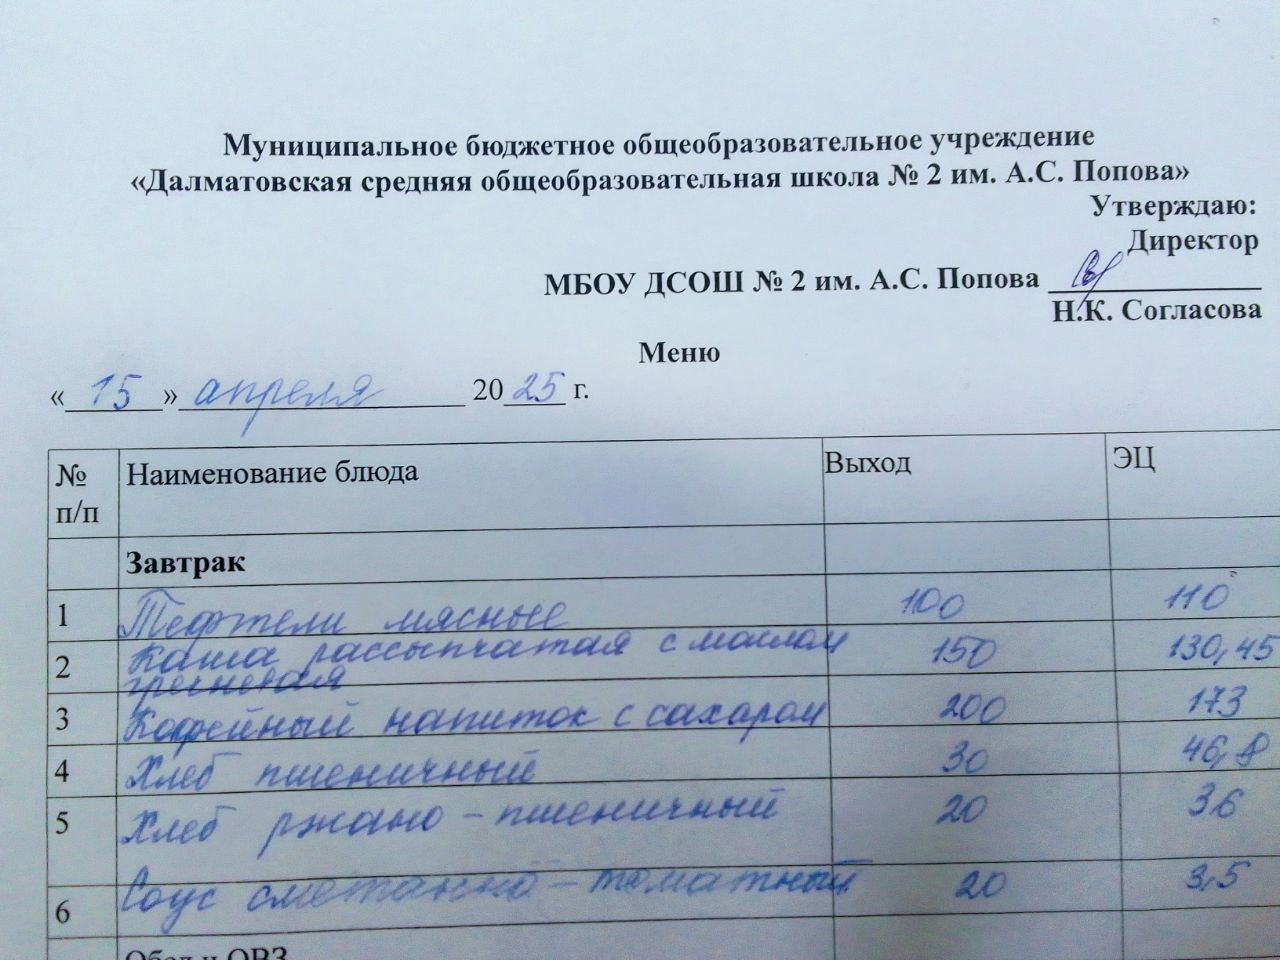 Муниципальное бюджетное общеобразовательное учреждение
«Далматовская средняя общеобразовательная школа № 2 им. А.С. Попова»
Утверждаю:
Директор
МБОУ ДСОШ № 2 им. А.С. Попова
Н.К. Согласова
Меню
«15» апреля 2025 г.
№ п/п Наименование блюда Выход ЭЦ
Завтрак
1 Тефтели мясные 100 110
2 Каша рассыпчатая с маслом 150 130,45
гречневая
3 Кофейный напиток с сахаром 200 173
4 Хлеб пшеничный 30 46,8
5 Хлеб ржано-пшеничный 20 36
6 Соус сметанно-томатный 20 3,5
Обед и ОВЗ